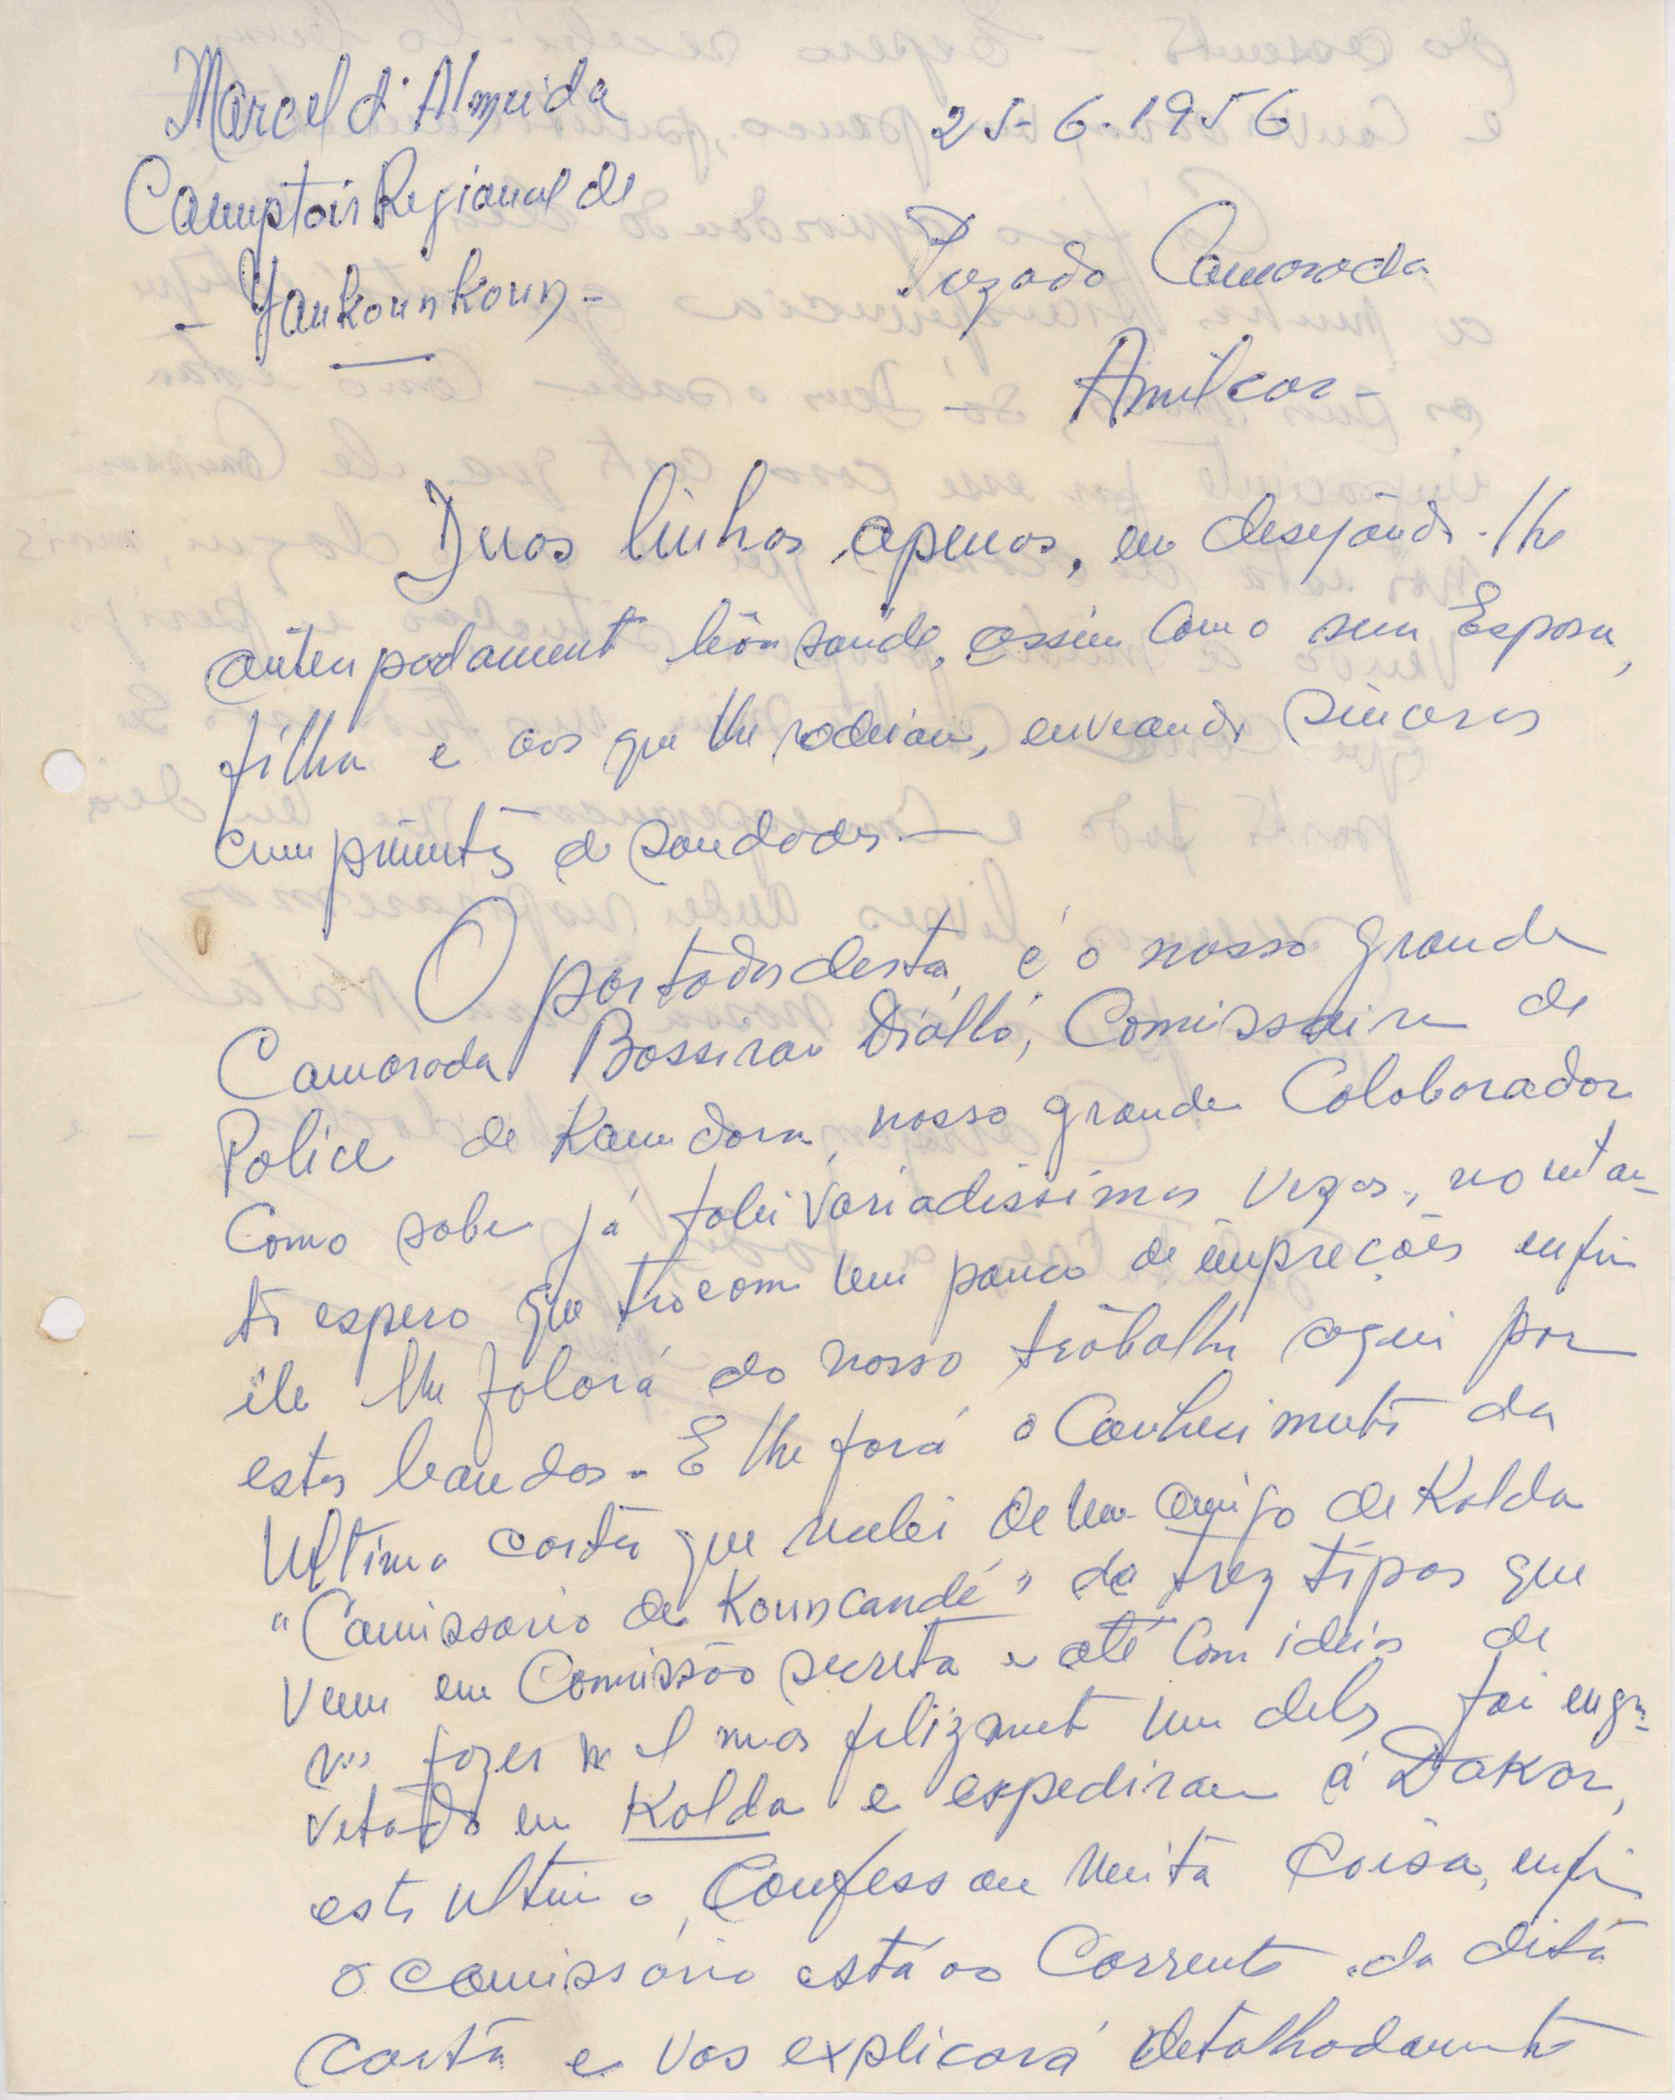 Marcel d'Almeida
25-6-1956
Comptoir Regional de
Youkounkoun-
Prezado Camarada
Amilcar-
Duas linhas apenas, em desejando-lhe
antecipadament bôa saúde, assim como sua Esposa,
filha e aos que lhe rodeiam, enveando sinceros
cumprimentos de saudades.-
O portador desta, é o nosso grande
Camarada Bossirou Diálló, Comissaire de
Police de Koundara, nosso grande Colaborador
Como sabe já falei variadissimas vezes, no entan-
to espero que trocam um pouco de impreções enfim
ele lhe falará do nosso trabalho aqui por
estes bandos. E lhe fará o Conhecimento da
Ultima carta que recebi de um amigo de Kolda
"Comissario de Kouncandé" de trez tipos que
vem em Comissão secreta e até com ideias de
nos fazer mal mas felizment um deles foi enga-
vetado em Kolda e expediram á Dakar,
este ultimo, Confessou muita coisa, enfim
o comissário está ao Corrente da dita
carta e vos explicará detalhadamente